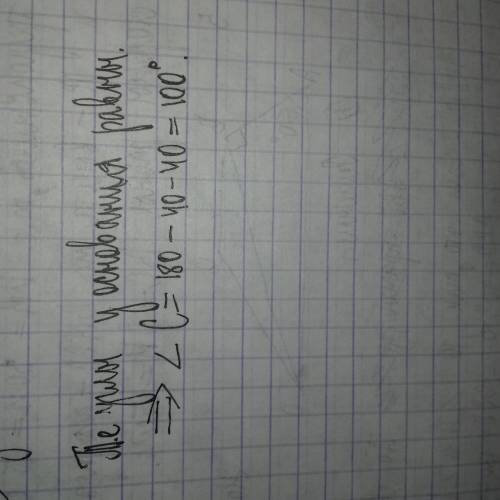 Те углы у основания равны.
⇒ ∠ C = 180 - 40 - 40 = 100°.